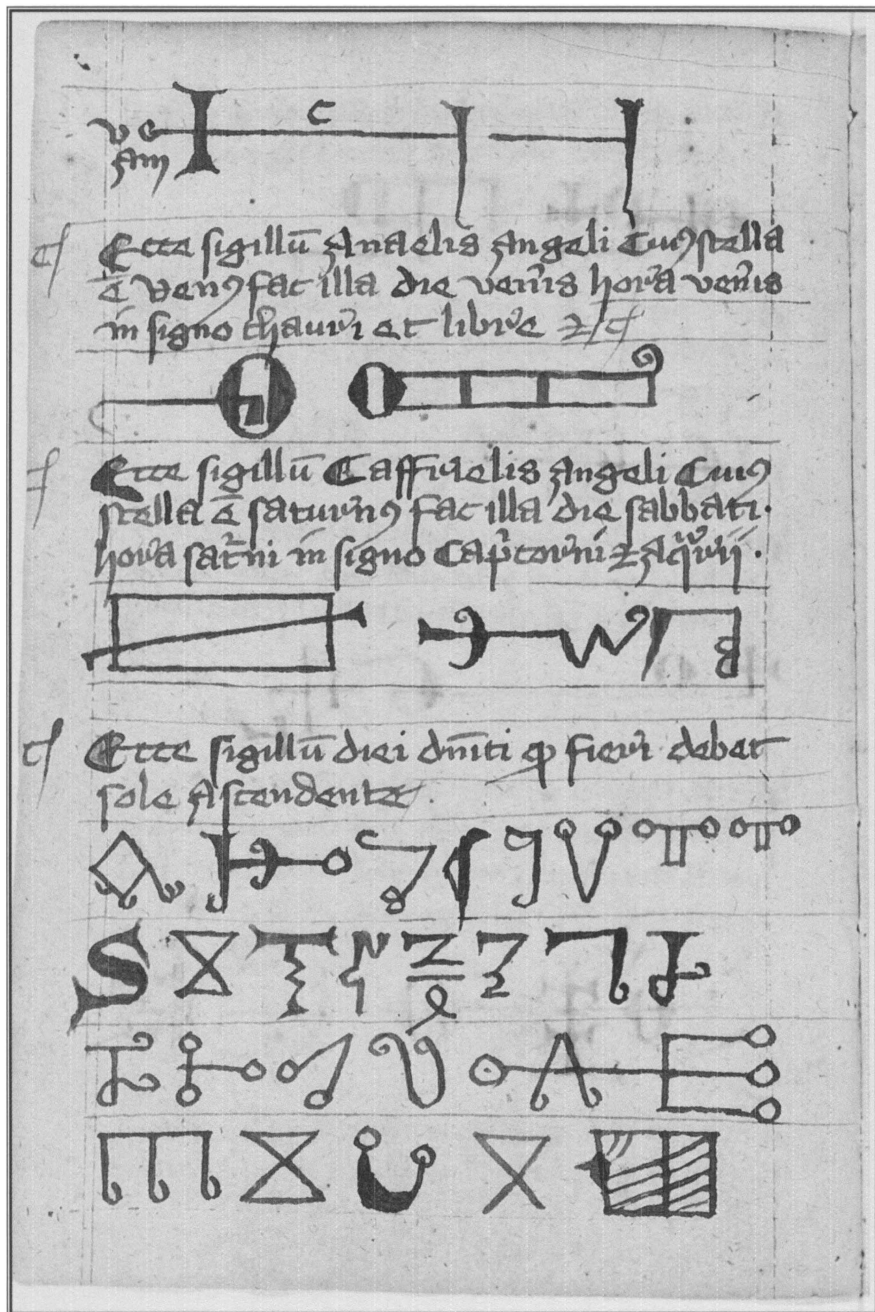 c
Ecce sigillū Anaelis Angeli Cuiꝯ stella
ē venꝯ fac illa die ven̄is hora ven̄is
in signo thauri et libre
Ecce sigillū Caffrielis Angeli Cuiꝯ
stella ē saturnꝯ fac illa die sabbati.
hora sat̄ni in signo Cap̄corni ⁊
Ecce sigillū diei dn̄ici fieri debet
sole Ascendente